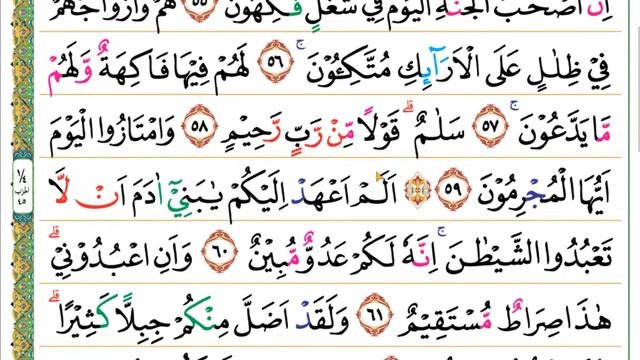 اِنَّ اَصْحٰبَ الْجَنَّةِ الْيَوْمَ فِيْ شُغُلٍ فٰكِهُوْنَ ۝٥٥ هُمْ وَاَزْوَاجُهُمْ
فِيْ ظِلٰلٍ عَلَى الْاَرَاۤىِٕكِ مُتَّكِـُٔوْنَ ۚ ۝٥٦ لَهُمْ فِيْهَا فَاكِهَةٌ وَّلَهُمْ
مَّا يَدَّعُوْنَ ۚ ۝٥٧ سَلٰمٌ ۗ قَوْلًا مِّنْ رَّبٍّ رَّحِيْمٍ ۝٥٨ وَامْتَازُوا الْيَوْمَ
اَيُّهَا الْمُجْرِمُوْنَ ۝٥٩ ۞ اَلَمْ اَعْهَدْ اِلَيْكُمْ يٰبَنِيْٓ اٰدَمَ اَنْ لَّا
تَعْبُدُوا الشَّيْطٰنَ ۚ اِنَّهٗ لَكُمْ عَدُوٌّ مُّبِيْنٌ ۝٦٠ وَاَنِ اعْبُدُوْنِيْ ۗ
هٰذَا صِرَاطٌ مُّسْتَقِيْمٌ ۝٦١ وَلَقَدْ اَضَلَّ مِنْكُمْ جِبِلًّا كَثِيْرًا ۗ
١/٤
الحزب
٤٥